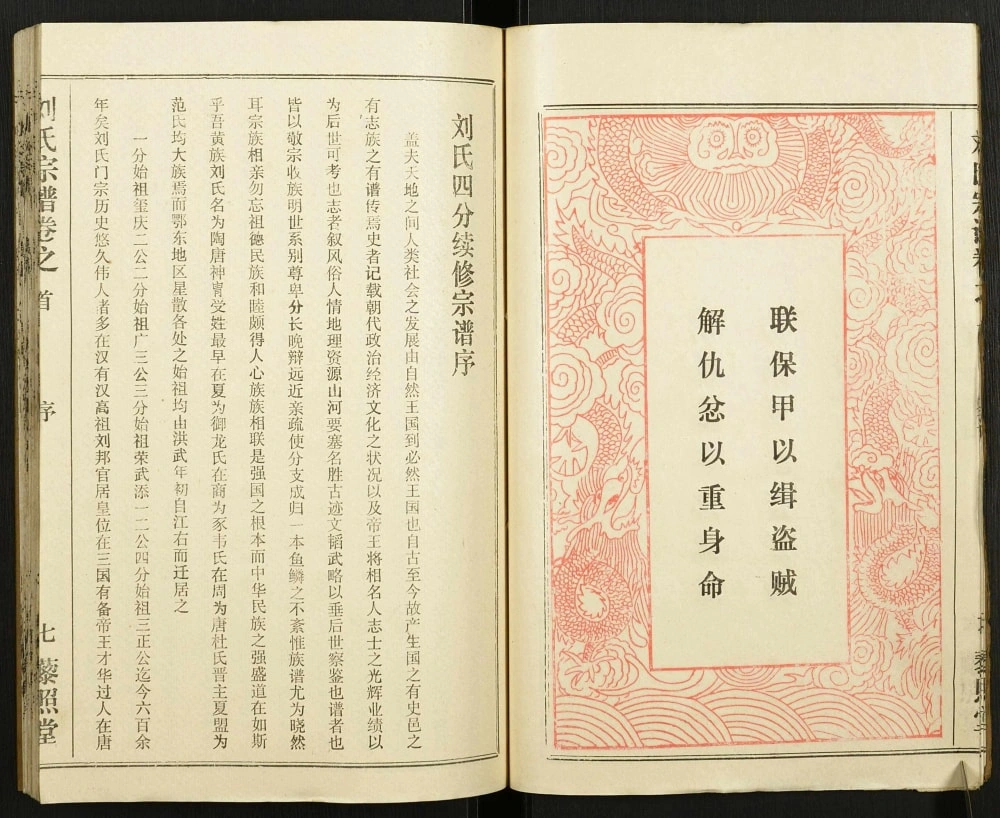 联保甲以缉盗贼
解仇忿以重身命
刘氏四分续修宗谱序
盖夫天地之间人类社会之发展由自然王国到必然王国也自古至今故产生国之有史邑之
有志族之有谱传焉史者记载朝代政治经济文化之状况以及帝王将相名人志士之光辉业绩以
为后世可考也志者叙风俗人情地理资源山河要塞名胜古迹文韬武略以垂后世察鉴也谱者也
皆以敬宗收族明世系别尊卑分长晚辩远近亲疏使分支成归一本鱼鳞之不紊惟族谱尤为晓然
耳宗族相亲勿忘祖德民族和睦颇得人心族族相联是强国之根本而中华民族之强盛道在如斯
乎吾黄族刘氏名为陶唐神胄受姓最早在夏为御龙氏在商为豕韦氏在周为唐杜氏晋主夏盟为
范氏均大族焉而鄂东地区星散各处之始祖均由洪武年初自江右而迁居之
一分始祖玺庆二公二分始祖广三公三分始祖荣武添一二公四分始祖三正公迄今六百余
年矣刘氏门宗历史悠久伟人者多在汉有汉高祖刘邦官居皇位在三国有备帝王才华过人在唐
刘氏宗谱卷之首 序 七 藜照堂